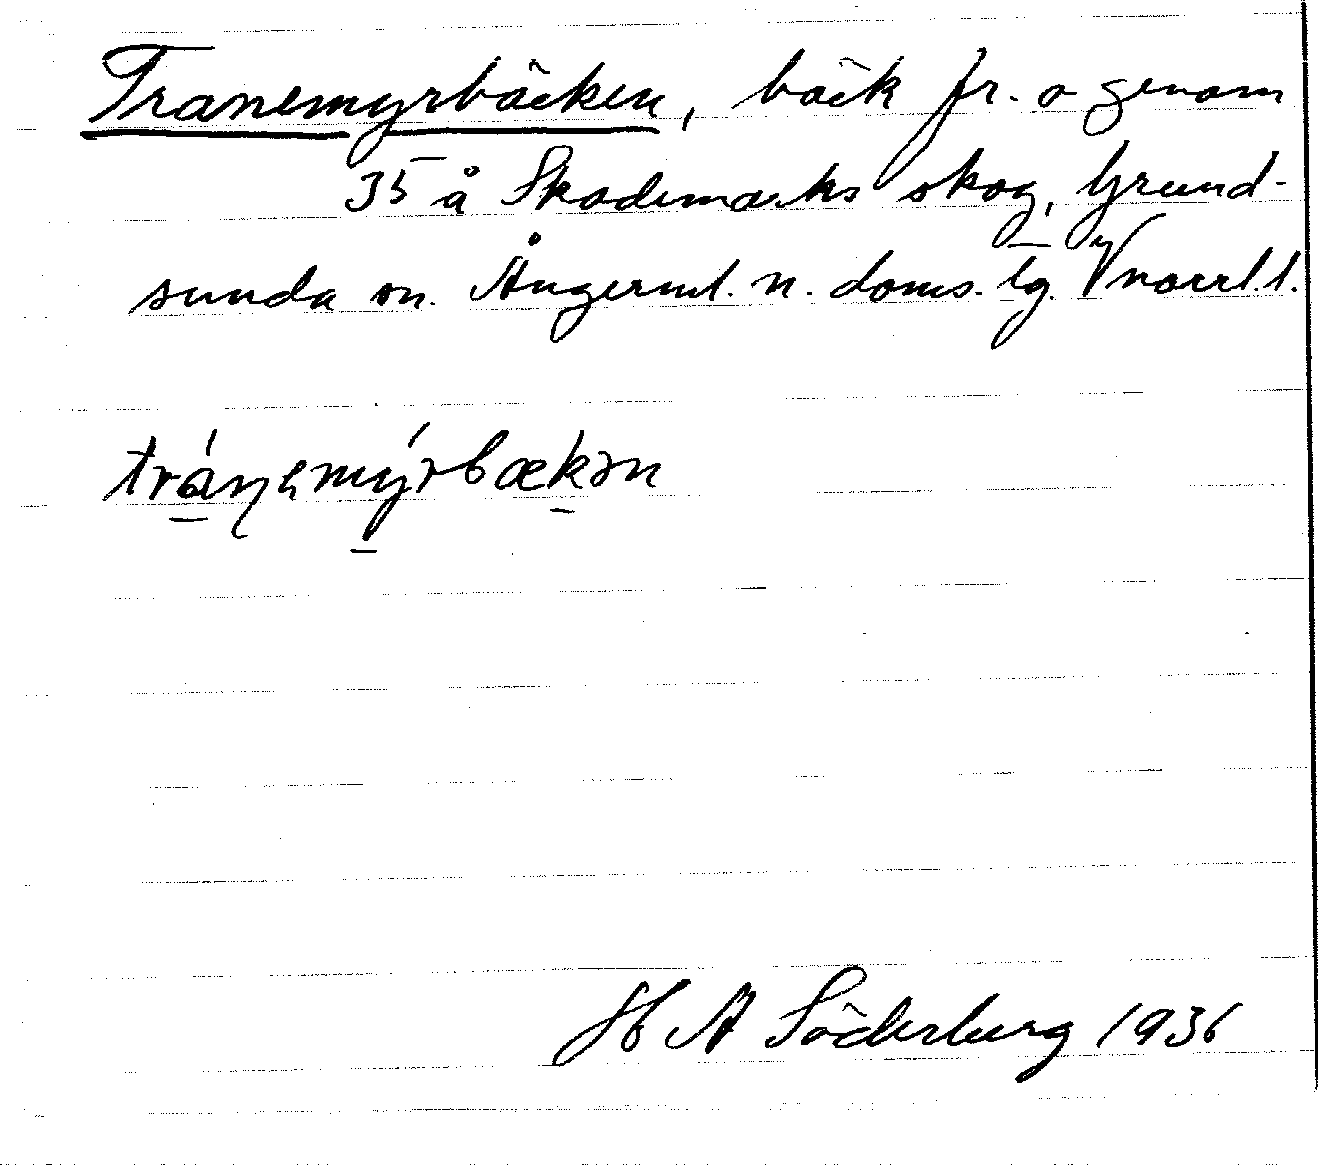 Tranemyrbäcken, bäck fr. o genom
35 å Skademarks skog, Grund-
sunda sn. Ångerml. n. doms. lg. Vnorrl. l.
tránemýrbækən
H A Söderberg 1936